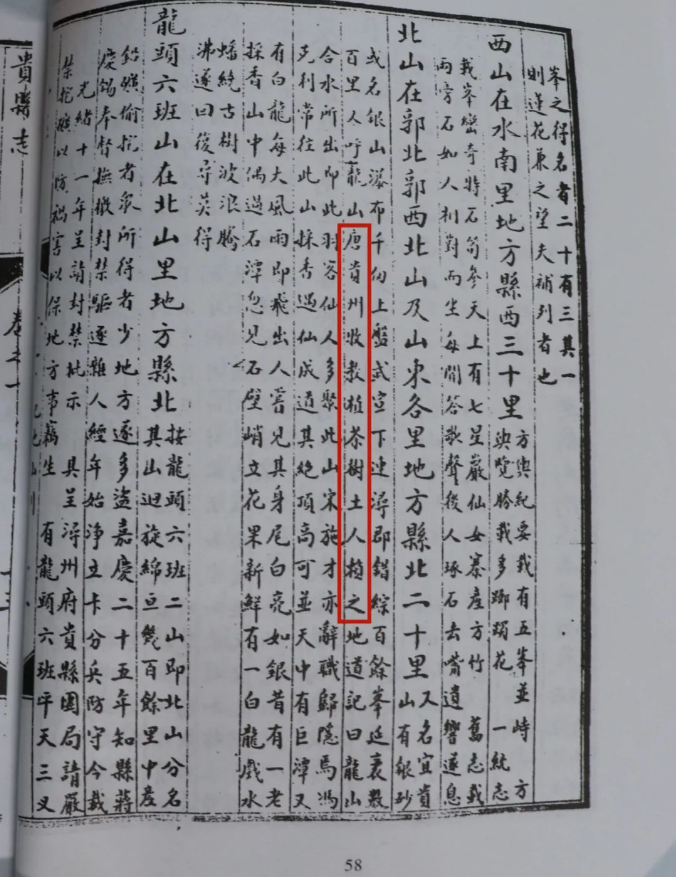 峯之得名者二十有三其一
則蓮花兼之望夫補列者也
西山在水南里地方縣西三十里
方輿紀要載有五峯並峙 方
輿覽勝載多瑯玡花 一統志
載峯巒奇特石筍參天上有七星巖仙女寨產方竹 舊志載
兩旁石如人刹對而坐每聞答歌聲後人琢石去嘴遺響遂息
北山在郭北郭西北山及山東各里地方縣北二十里
又名宜貴
山有銀砂
或名銀山瀑布千仞上盤武宣下連潯郡錯綜百餘峯延袤數
百里人呼龍山唐貴州收教植茶樹土人賴之地道記曰龍山
合水所出即此羽客仙人多聚此山宋施才亦辭職歸隱焉馮
克利常往此山採香遇仙成道其絕頂高可並天中有巨潭又
有白龍每大風雨即飛出人嘗見其身尾白亮如銀昔有一老
採香山中偶過石潭忽見石壁峭立花果新鮮有一白龍戲水
蟠繞古樹波浪騰
沸遂回後尋莫得
龍頭六班山在北山里地方縣北
按龍頭六班二山即北山分名
其山迴旋綿亘幾百餘里中產
鉛礦偷挖者眾所得者少地方遂多盜嘉慶二十五年知縣蔣
慶錫奉督撫檄封禁驅逐雜人經年始淨立卡分兵防守今載
光緒十一年呈請封禁批示 具呈潯州府貴縣團局請嚴
禁挖礦以防禍害以保地方事竊生 有龍頭六班平天三叉
貴縣志
卷之一
58